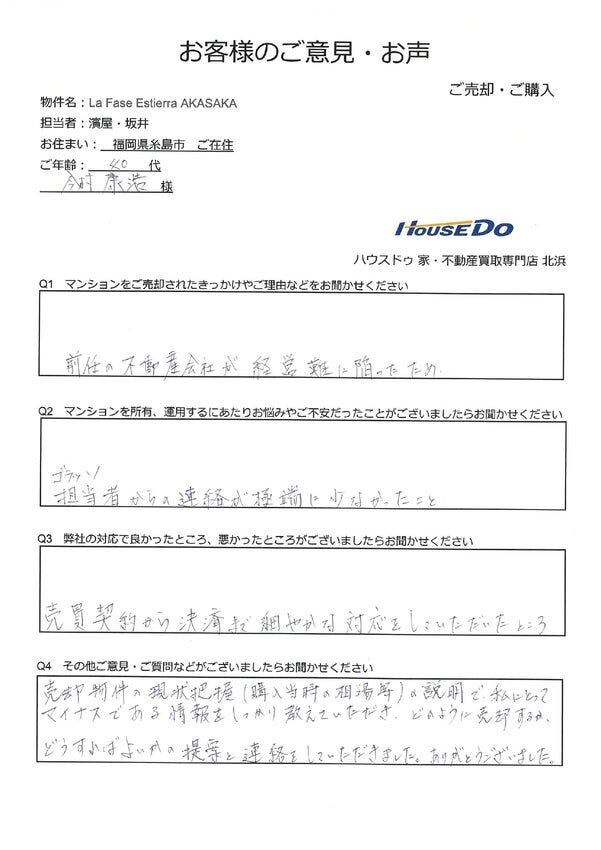 お客様のご意見・お声
ご売却・ご購入
物件名：La Fase Estierra AKASAKA
担当者：濱屋・坂井
お住まい： 福岡県糸島市 ご在住
ご年齢： 40 代
今村 康浩 様
HOUSEDO
ハウスドゥ 家・不動産買取専門店 北浜
Q1 マンションをご売却されたきっかけやご理由などをお聞かせください
前任の不動産会社が経営難に陥ったため.
Q2 マンションを所有、運用するにあたりお悩みやご不安だったことがございましたらお聞かせください
担当者からの連絡が極端に少なかったこと
Q3 弊社の対応で良かったところ、悪かったところがございましたらお聞かせください
売買契約から決済まで細やかな対応をしていただいたところ
Q4 その他ご意見・ご質問などがございましたらお聞かせください
売却物件の現状把握(購入当時の相場等)の説明で、私にとって
マイナスである情報をしっかり教えていただき、どのように売却するか、
どうすればよいかの提案と連絡をしていただきました。ありがとうございました。